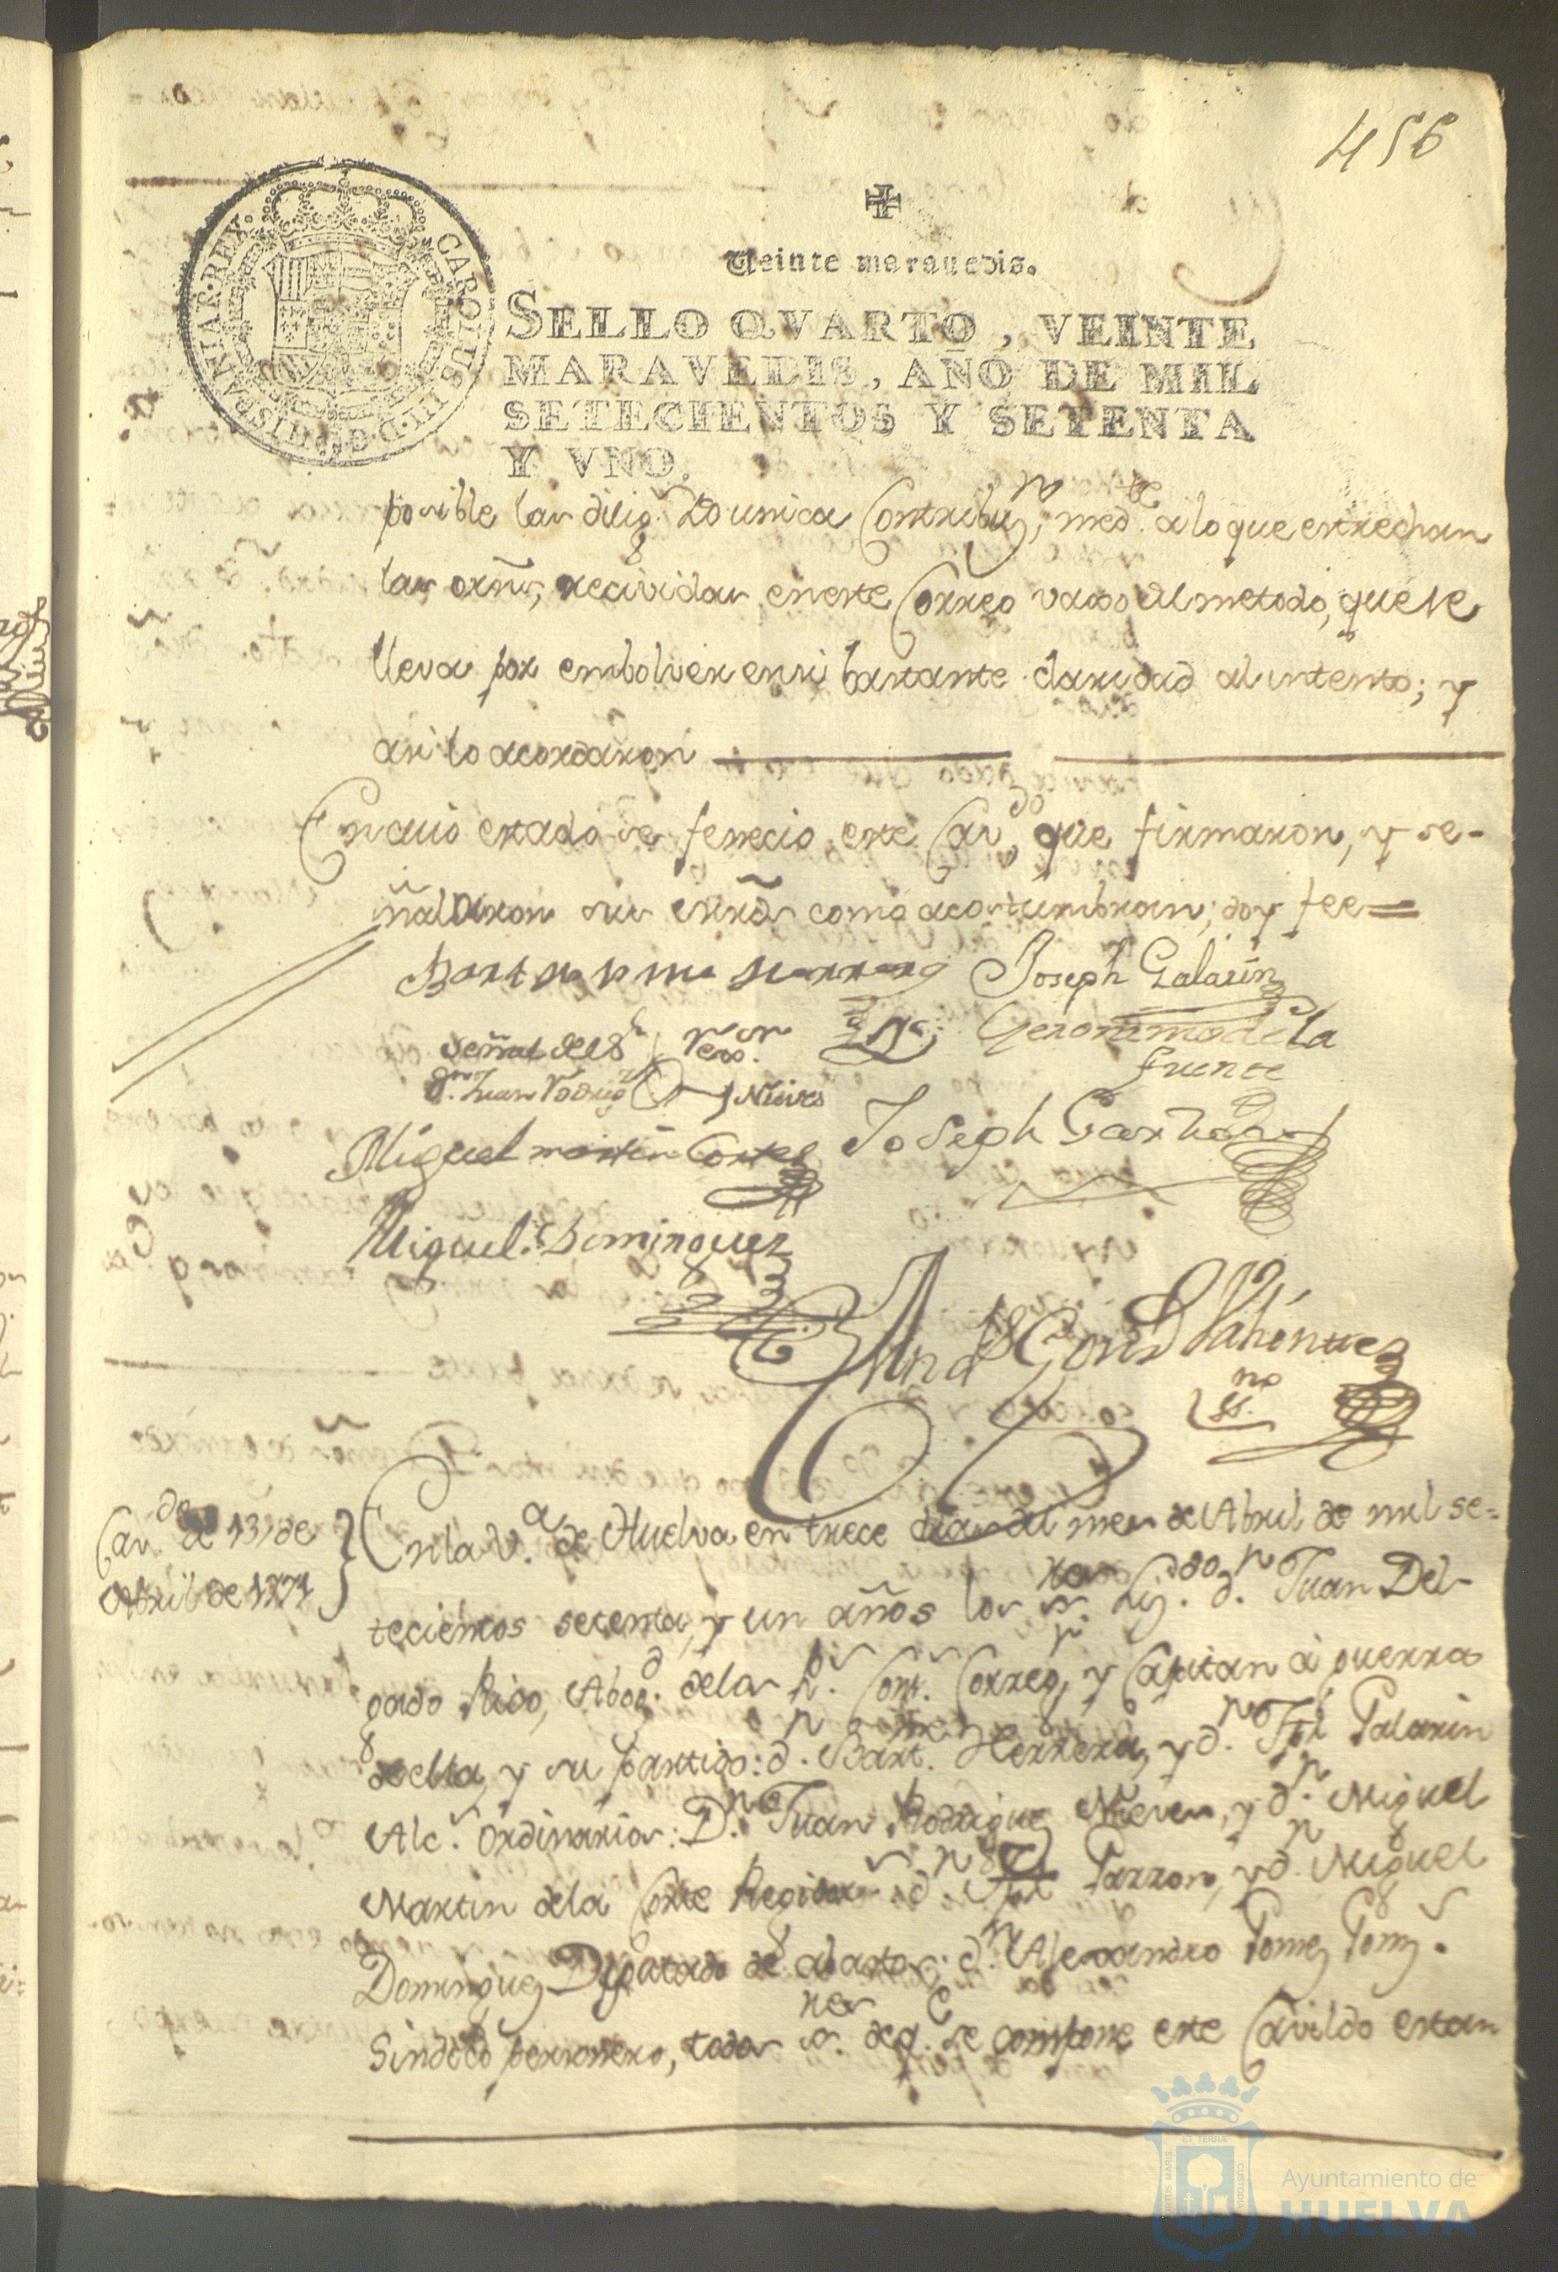 456
Veinte maravedis.
SELLO QVARTO, VEINTE
MARAVEDIS, AÑO DE MIL
SETECIENTOS Y SETENTA
Y VNO.
CAROLUS III. D. G. HISPANIAR. REX.
posible las dilig.s de unica Contribuz.n, med.te a lo que estrechan
las orns, recividas en este Correo vaxo del metodo, que se
lleva por embolver en si bastante claridad al intento; y
asi lo acordaron
En cuio estado se fenecio este Cav.do, que firmaron, y se-
ñalaron sus mrds como acostumbran; doy fee=
Bartholome Herrera Joseph Galarin
Señal del S.r Rexd.or Geronimo de la
fuente
D.n Juan Rodrig.z Nieves
Miguel martin Cortes Joseph Garzon
Miguel Dominguez
ss.no
Cav.do de 13, de
Abril de 1771
En la V.a de Huelva en trece dias del mes de Abril de mil se-
tecientos setenta, y un años los s.res Liz.do d.n Juan Del-
gado Rico, Abog.do de los R.s Cons.s Correg.r y Capitan à guerra
de ella, y su partido: d.n Bart.me Herrera, y d.n Jph Galarin
Alc.s ordinarios: D.n Juan Rodriguez Nieves, y d.n Miguel
Martin de la Corte Regidores: d.n Jph Garzon, y d.n Miguel
Dominguez Diputados de abastos: d.n Alexandro Gomez
Sindico personero, todos s.res de q.e se compone este Cavildo estan
PORTUS MARIS
ET TERRA
CUSTODIA
Ayuntamiento de
HUELVA